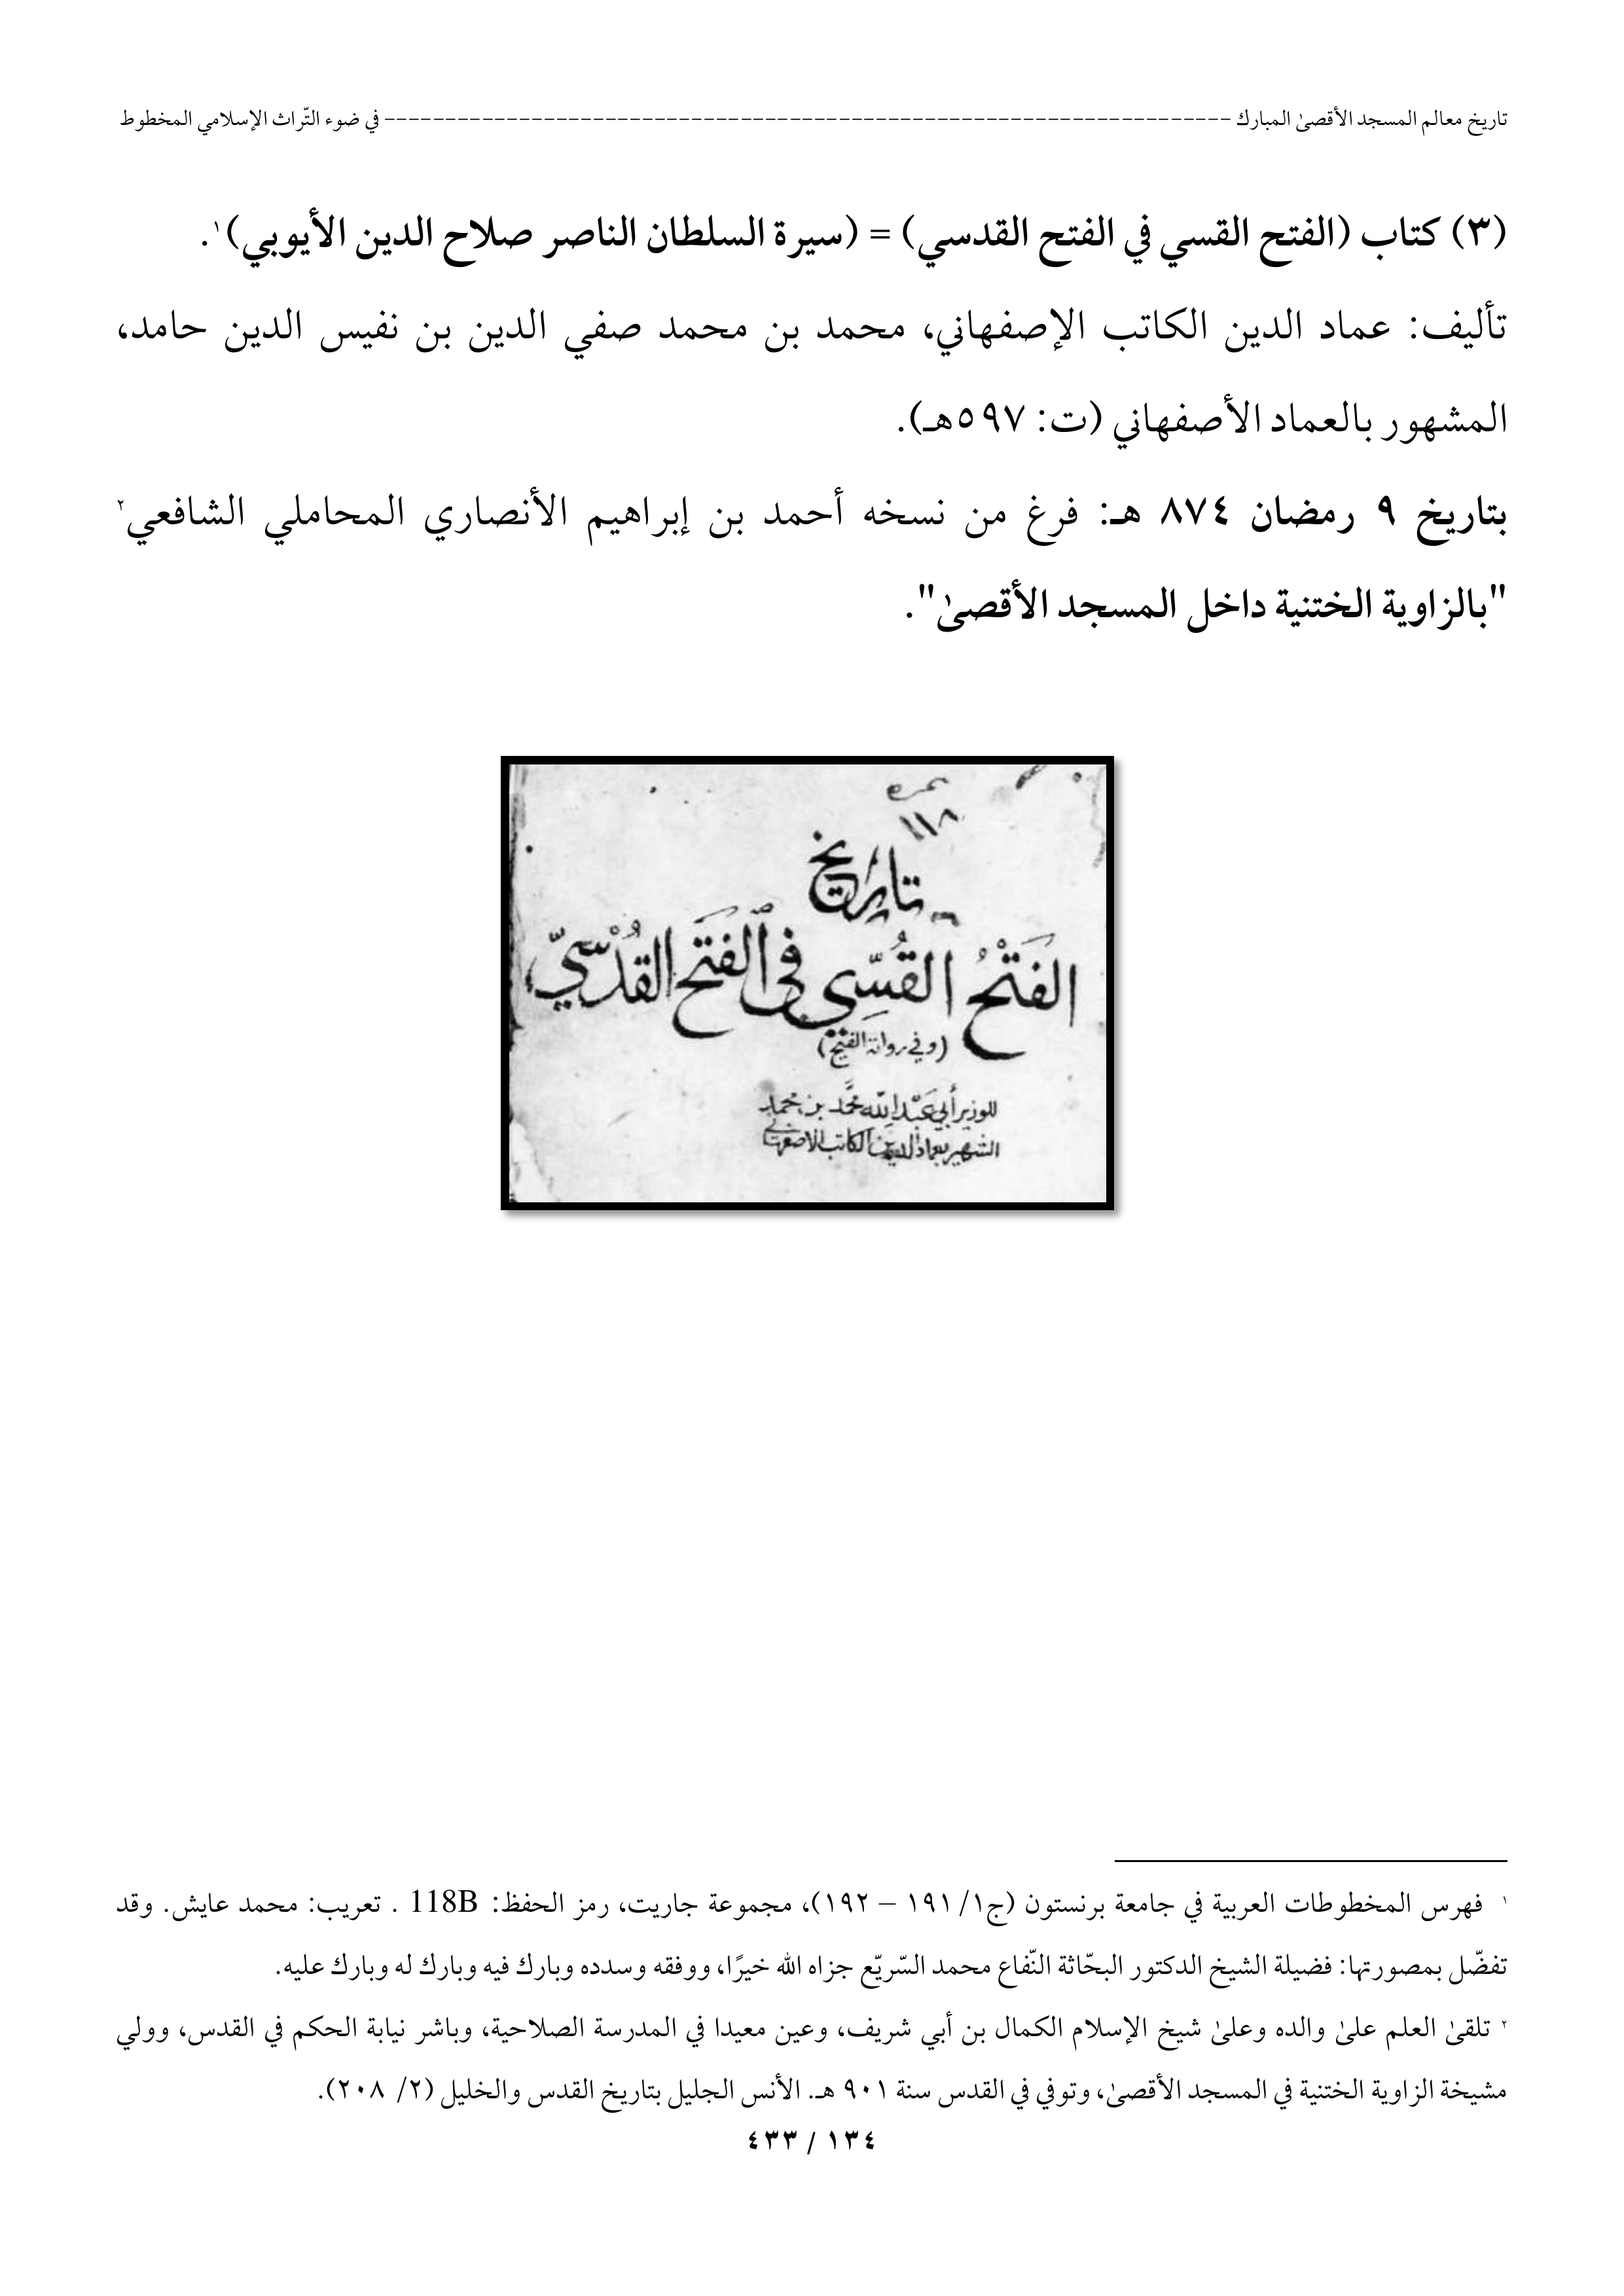 تاريخ معالم المسجد الأقصىٰ المبارك ---------------------------------------------------------------------- في ضوء التّراث الإسلامي المخطوط
(٣) كتاب (الفتح القسي في الفتح القدسي) = (سيرة السلطان الناصر صلاح الدين الأيوبي)١.
تأليف: عماد الدين الكاتب الإصفهاني، محمد بن محمد صفي الدين بن نفيس الدين حامد،
المشهور بالعماد الأصفهاني (ت: ٥٩٧هـ).
بتاريخ ٩ رمضان ٨٧٤ هـ: فرغ من نسخه أحمد بن إبراهيم الأنصاري المحاملي الشافعي٢
"بالزاوية الختنية داخل المسجد الأقصىٰ".
نمره
١١٨
تاريخ
الفَتْحُ القُسِّي في الفَتْح القُدْسِيّ
(وفي رواية الفتيح)
للوزير أبي عَبْد الله محمَّد بن محمد
الشهير بعماد الدين الكاتب الاصفهاني
١ فهرس المخطوطات العربية في جامعة برنستون (ج١/ ١٩١ – ١٩٢)، مجموعة جاريت، رمز الحفظ: 118B . تعريب: محمد عايش. وقد
تفضّل بمصورتها: فضيلة الشيخ الدكتور البحّاثة النّفاع محمد السّريّع جزاه الله خيرًا، ووفقه وسدده وبارك فيه وبارك له وبارك عليه.
٢ تلقىٰ العلم علىٰ والده وعلىٰ شيخ الإسلام الكمال بن أبي شريف، وعين معيدا في المدرسة الصلاحية، وباشر نيابة الحكم في القدس، وولي
مشيخة الزاوية الختنية في المسجد الأقصىٰ، وتوفي في القدس سنة ٩٠١ هـ. الأنس الجليل بتاريخ القدس والخليل (٢/ ٢٠٨).
١٣٤ / ٤٣٣